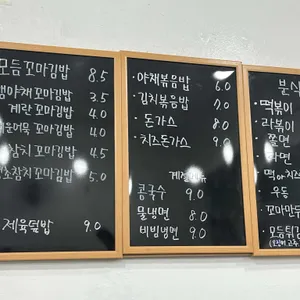 모듬 꼬마김밥 8.5
야채 꼬마김밥 3.5
계란 꼬마김밥 4.0
꼬마김밥 4.0
참치 꼬마김밥 4.5
참치 꼬마김밥 5.0
제육덮밥 9.0
·야채볶음밥 6.0
·김치볶음밥 7.0
·돈가스 8.0
·치즈돈가스 9.0
콩국수 9.0
물냉면 8.0
비빔냉면 9.0
분식
·떡볶이
·라볶이
·쫄면
·라면
·우동
·꼬마만두
·모듬튀김